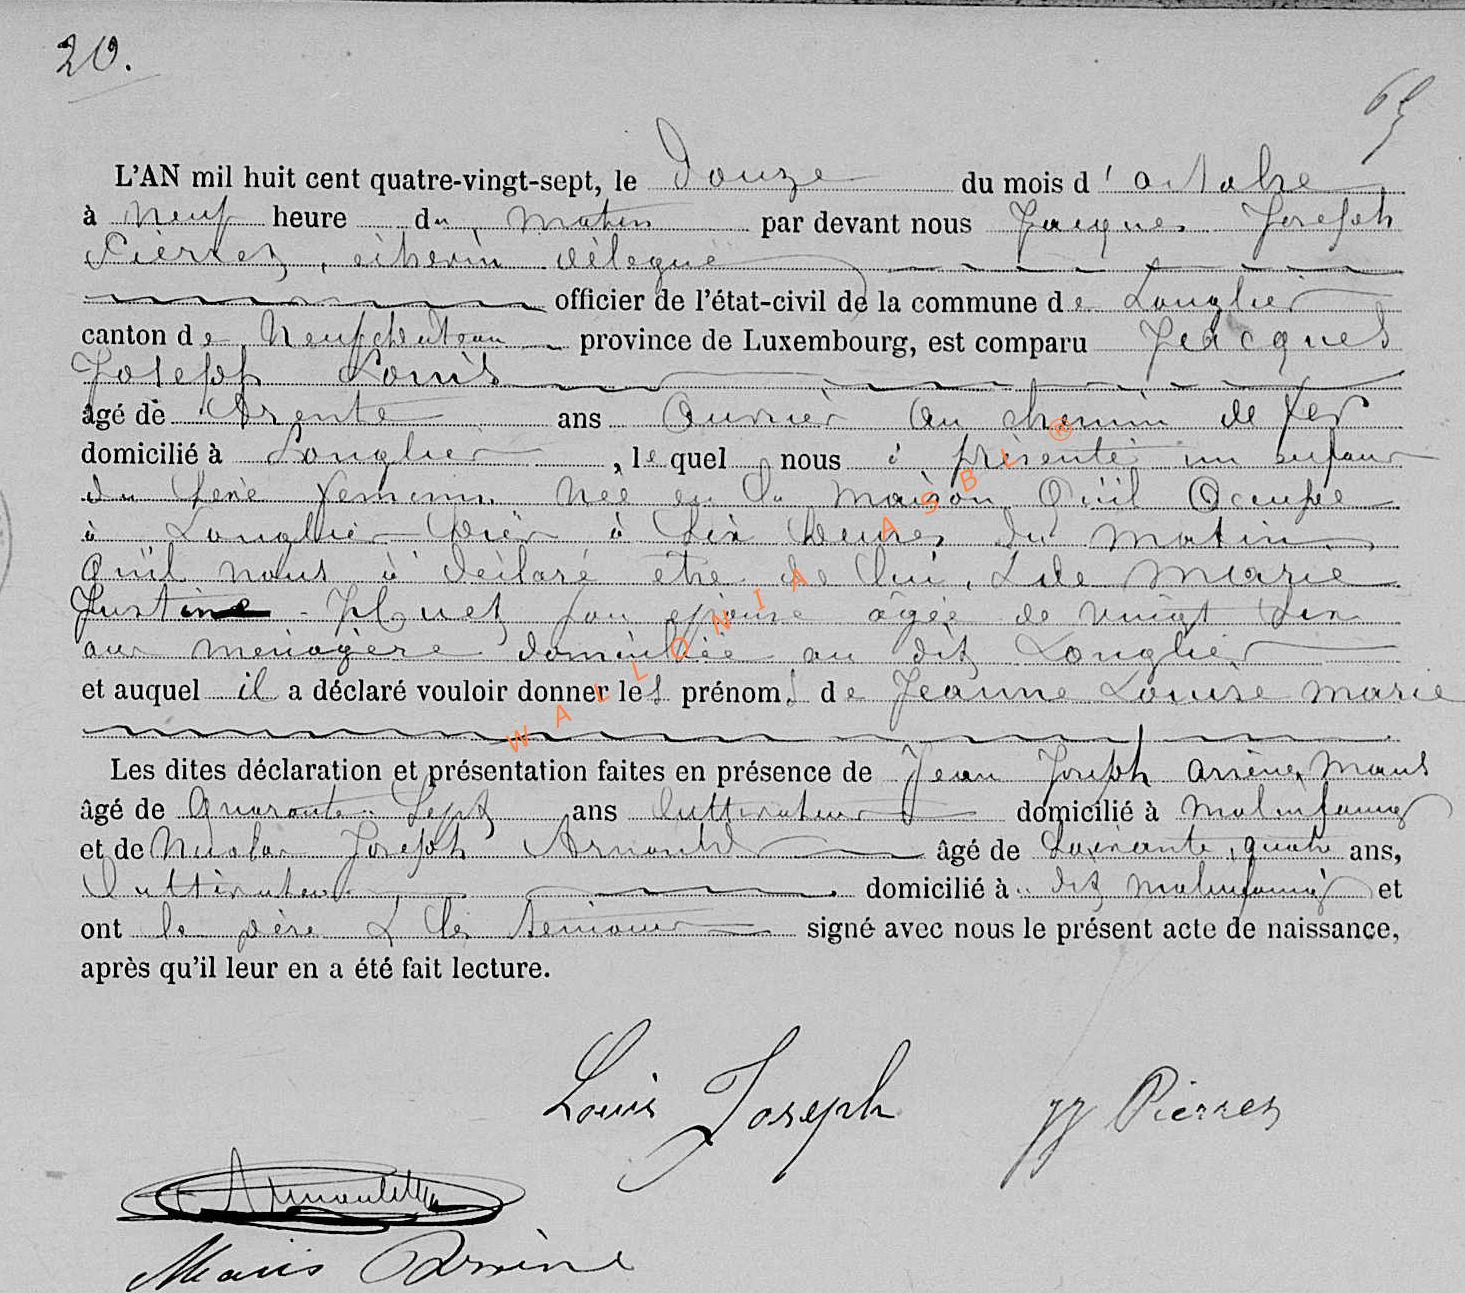 20.
L'AN mil huit cent quatre-vingt-sept, le Douze du mois d'octobre
à neuf heure du matin par devant nous Jacques Joseph
Pierrez, échevin délégué
officier de l'état-civil de la commune de Longlier
canton de Neufchateau province de Luxembourg, est comparu Jacques
Joseph Louis
âgé de trente ans Ouvrier au chemin de fer
domicilié à Longlier, lequel nous à présenté un enfant
du sexe féminin née en la maison qu'il occupée
à Longlier hier à six heures du matin
qu'il nous à déclaré être de lui, & de Marie
Justine son épouse âgée de vingt six
ans menagère domiciliée au dit Longlier
et auquel il a déclaré vouloir donner les prénoms de Jeanne Louise Marie
Les dites déclaration et présentation faites en présence de Jean Joseph Arsène
âgé de quarante sept ans cultivateur domicilié à
et de Nicolas Joseph Arnould âgé de soixante quatre ans,
cultivateur domicilié à dit et
ont le père & les témoins signé avec nous le présent acte de naissance,
après qu'il leur en a été fait lecture.
Louis Joseph JJ Pierrez
Arnould
Arsène
WALLONIA ASBL ®